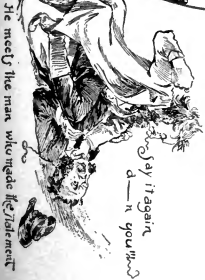 "Say it again
d——n you!!"
He meets the man who made the statement